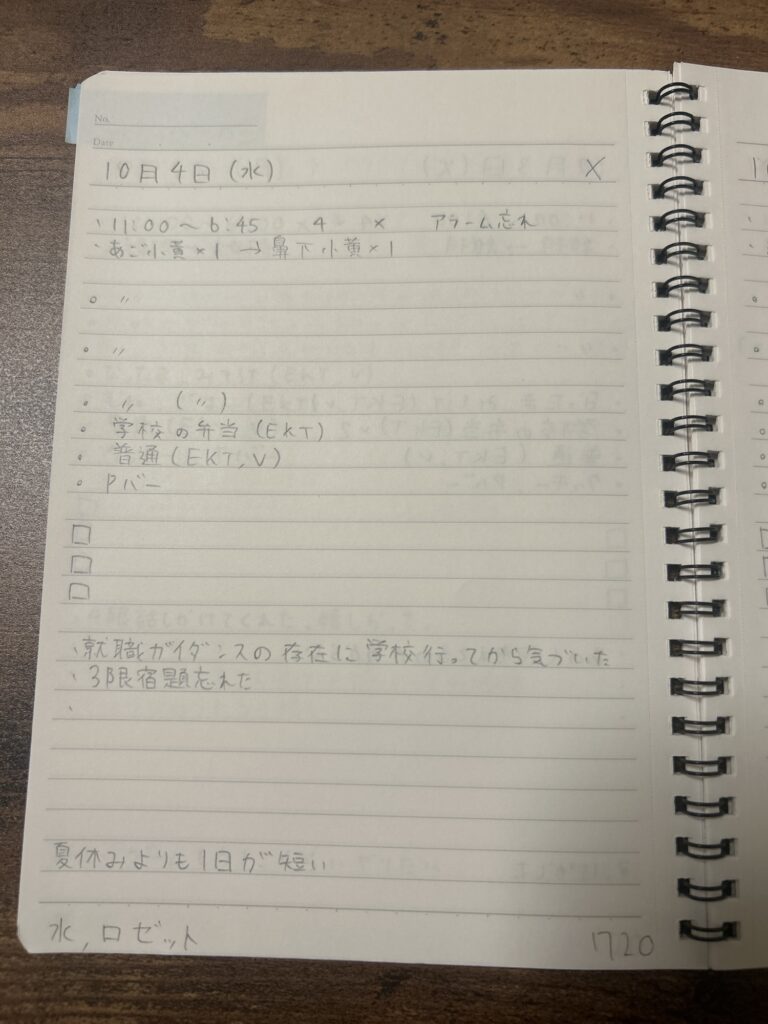 No.
Date
10月4日(水) X
・11:00〜6:45 4 × アラーム忘れ
・あご小黄×1→鼻下小黄×1
〃
〃
〃 (〃)
学校の弁当(EKT)
普通(EKT,V)
Pバー
・就職ガイダンスの存在に学校行ってから気づいた
・3限宿題忘れた
・
夏休みよりも1日が短い
水,ロゼット 1720